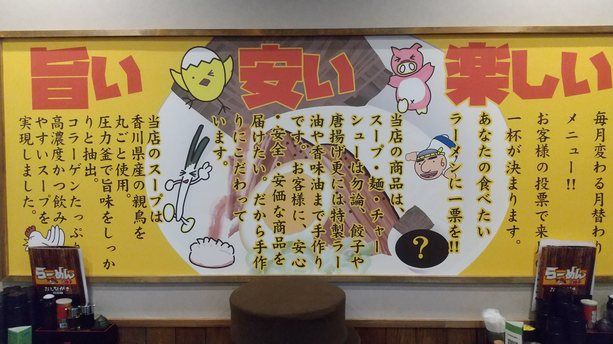 旨い
安い
楽しい
毎月変わる月替わり
メニュー!!
お客様の投票で来
一杯が決まります。
あなたの食べたい
ラーメンに一票を!!
当店の商品は、
スープ・麺・チャー
シューは勿論、餃子や
唐揚げ更には特製ラー
油や香味油まで手作り
です。お客様に、安心
・安全・安価な商品を
届けたい。だから手作
りにこだわって
います。
当店のスープは
香川県産の親鳥を
丸ごと使用。
圧力釜で旨味をしっか
りと抽出。
コラーゲンたっぷり
高濃度かつ飲み
やすいスープを
実現しました。
?
らーめん
らーめん